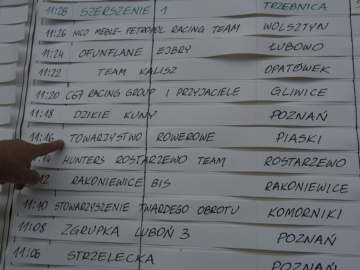 11:28 SZERSZENIE 1 TRZEBNICA
11:26 NICO MEBLE-PETROPOL RACING TEAM WOLSZTYN
11:24 OFUNFLANE EJBRY ŁUBOWO
11:22 TEAM KALISZ OPATÓWEK
11:20 CG7 RACING GROUP I PRZYJACIELE GLIWICE
11:18 DZIKIE KUNY POZNAŃ
11:16 TOWARZYSTWO ROWEROWE PIASKI
HUNTERS ROSTARZEWO TEAM ROSTARZEWO
RAKONIEWICE BIS RAKONIEWICE
11:10 STOWARZYSZENIE TWARDEGO OBROTU KOMORNIKI
11:08 ZGRUPKA LUBOŃ 3 POZNAŃ
11:06 STRZELECKA POZNAŃ